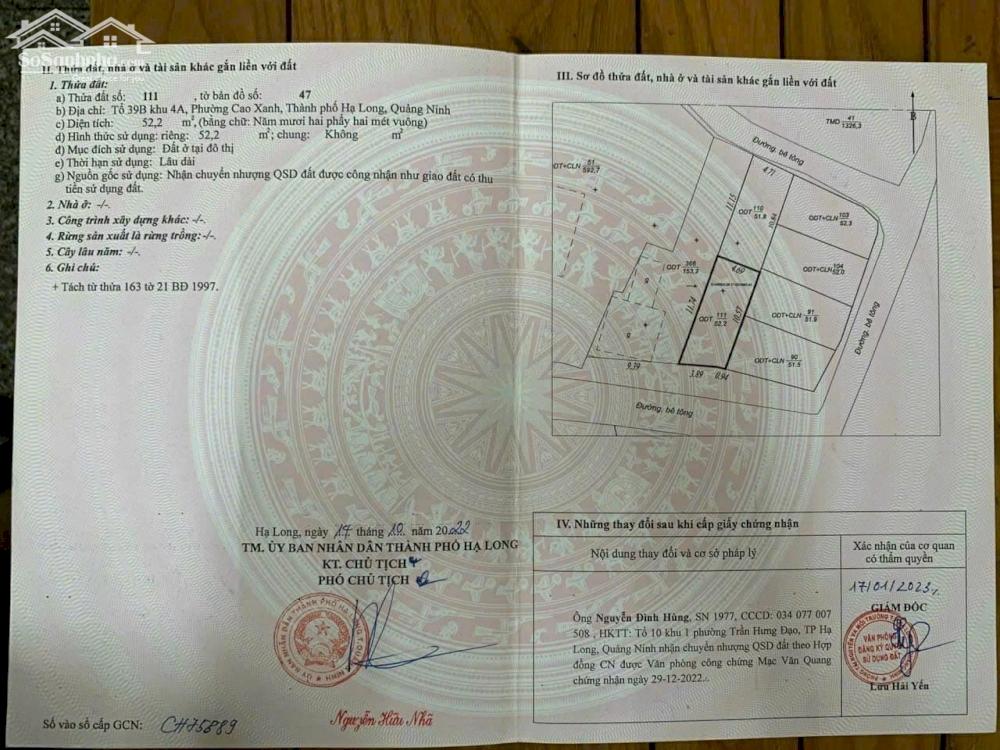 SoSanhnha.com
II. Thửa đất, nhà ở và tài sản khác gắn liền với đất
1. Thửa đất:
a) Thửa đất số: 111 , tờ bản đồ số: 47
b) Địa chỉ: Tổ 39B khu 4A, Phường Cao Xanh, Thành phố Hạ Long, Quảng Ninh
c) Diện tích: 52,2 m², (bằng chữ: Năm mươi hai phẩy hai mét vuông)
d) Hình thức sử dụng: riêng: 52,2 m²; chung: Không m²
đ) Mục đích sử dụng: Đất ở tại đô thị
e) Thời hạn sử dụng: Lâu dài
g) Nguồn gốc sử dụng: Nhận chuyển nhượng QSD đất được công nhận như giao đất có thu
tiền sử dụng đất.
2. Nhà ở: -/-.
3. Công trình xây dựng khác: -/-.
4. Rừng sản xuất là rừng trồng: -/-.
5. Cây lâu năm: -/-.
6. Ghi chú:
+ Tách từ thửa 163 tờ 21 BĐ 1997.
Hạ Long, ngày 17 tháng 10 năm 2022
TM. ỦY BAN NHÂN DÂN THÀNH PHỐ HẠ LONG
KT. CHỦ TỊCH
PHÓ CHỦ TỊCH
Nguyễn Hữu Nhã
Số vào sổ cấp GCN: CH75889
III. Sơ đồ thửa đất, nhà ở và tài sản khác gắn liền với đất
B
TMD 41 1326,3
Đường bê tông
ODT+CLN 51 592,7
4.71
11.15
ODT 110 51.8
10.84
ODT+CLN 103 52,3
ODT 368 153,2
4.60
ODT+CLN 104 52.0
g
11.74
ODT 111 52,2
10.57
ODT+CLN 91 51.9
g
ODT+CLN 90 51.5
9.79
3.89
0.94
Đường bê tông
Đường bê tông
IV. Những thay đổi sau khi cấp giấy chứng nhận
Nội dung thay đổi và cơ sở pháp lý
Xác nhận của cơ quan
có thẩm quyền
17/01/2023
GIÁM ĐỐC
Ông Nguyễn Đình Hùng, SN 1977, CCCD: 034 077 007
508 , HKTT: Tổ 10 khu 1 phường Trần Hưng Đạo, TP Hạ
Long, Quảng Ninh nhận chuyển nhượng QSD đất theo Hợp
đồng CN được Văn phòng công chứng Mạc Văn Quang
chứng nhận ngày 29-12-2022.
VĂN PHÒNG
ĐĂNG KÝ QUYỀN
SỬ DỤNG ĐẤT
Lưu Hải Yến